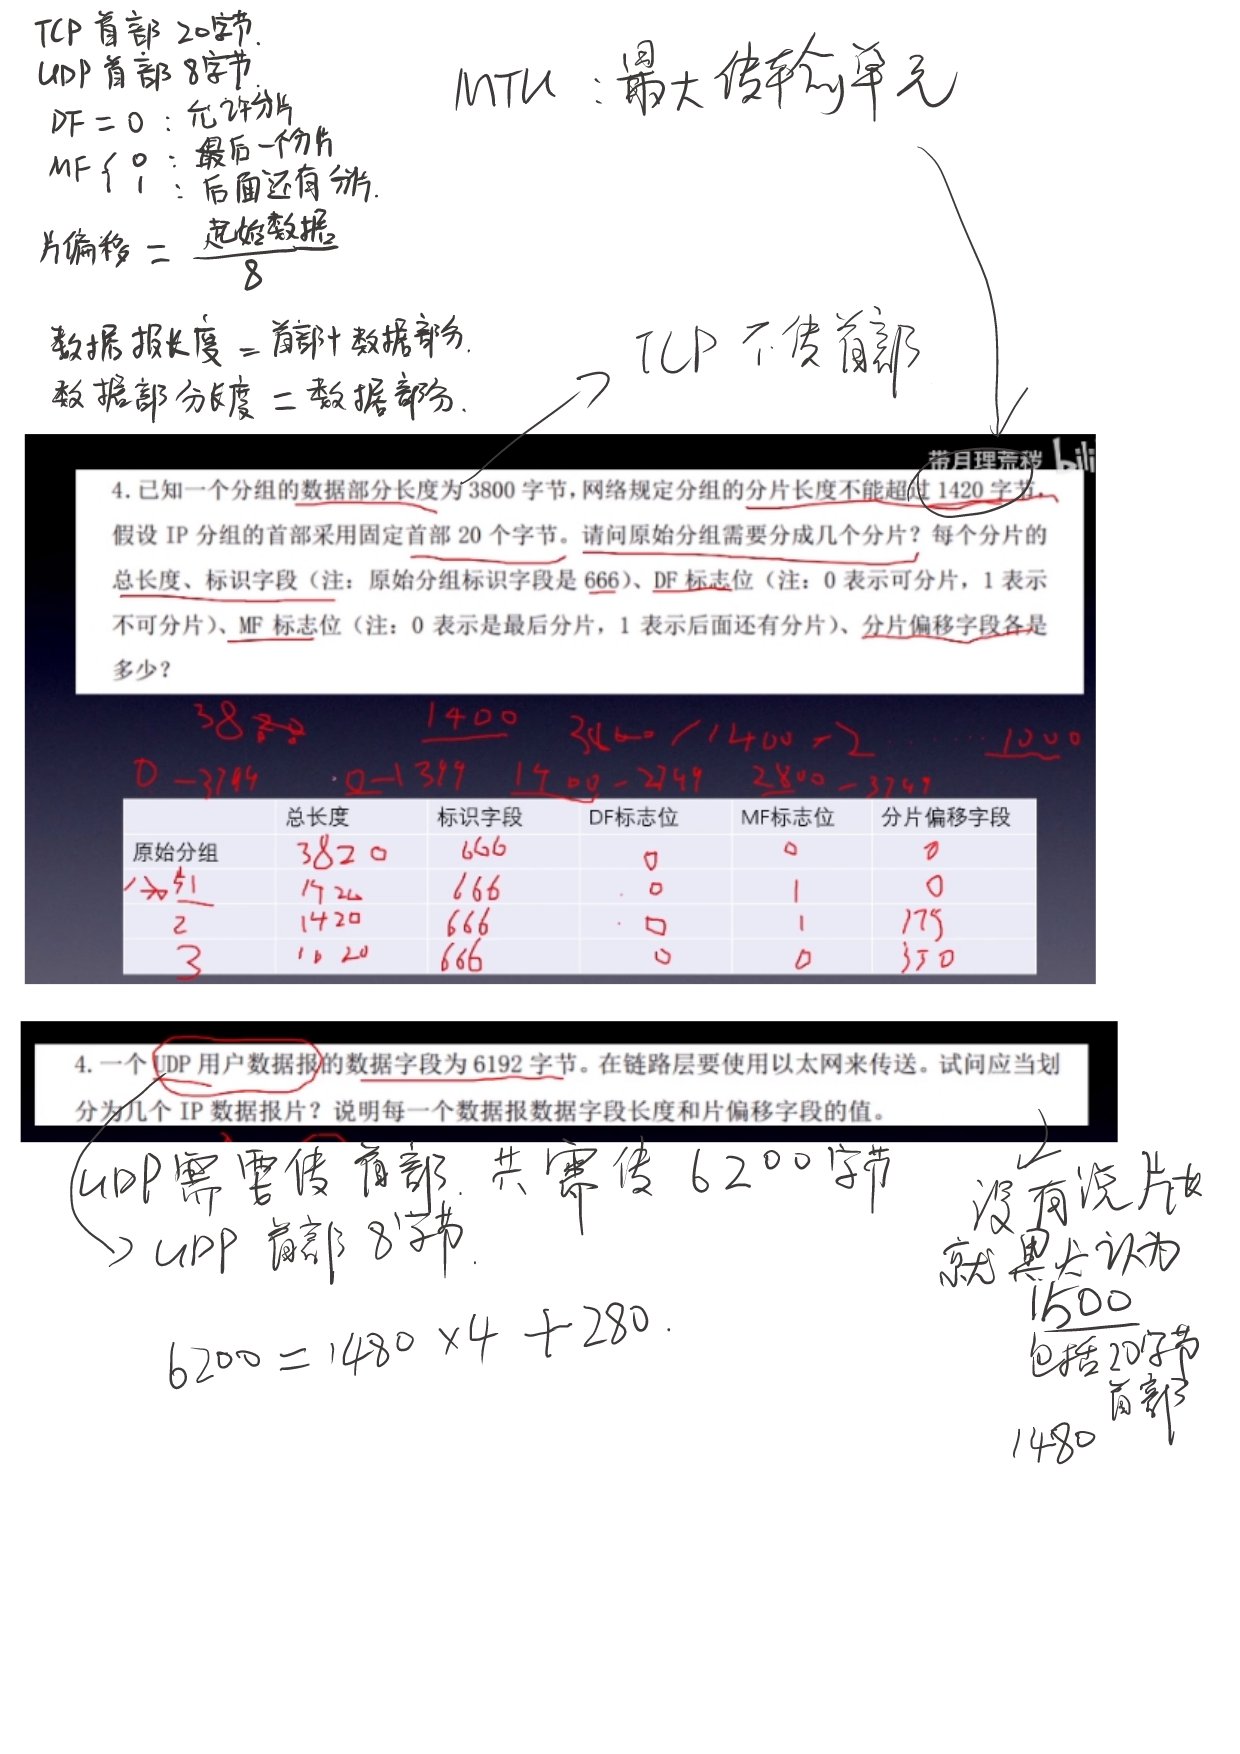 TCP 首部 20字节.
UDP 首部 8字节.
DF = 0 : 允许分片
MF { 0 : 最后一个分片
1 : 后面还有分片.
片偏移 = 起始数据 / 8
MTU : 最大传输单元
数据报长度 = 首部+数据部分.
数据部分长度 = 数据部分.
TCP 不传首部
带月理荒秽 bili
4. 已知一个分组的数据部分长度为 3800 字节，网络规定分组的分片长度不能超过 1420 字节，
假设 IP 分组的首部采用固定首部 20 个字节。请问原始分组需要分成几个分片？每个分片的
总长度、标识字段（注：原始分组标识字段是 666）、DF 标志位（注：0 表示可分片，1 表示
不可分片）、MF 标志位（注：0 表示是最后分片，1 表示后面还有分片）、分片偏移字段各是
多少？
38 1400 /1400 = 2 ...... 1000
0 - 3799 0-1399 1400-2799 2800-3799
总长度 标识字段 DF标志位 MF标志位 分片偏移字段
原始分组 3820 666 0 0 0
1 1420 666 0 1 0
2 1420 666 0 1 175
3 1020 666 0 0 350
4. 一个 UDP 用户数据报的数据字段为 6192 字节。在链路层要使用以太网来传送。试问应当划
分为几个 IP 数据报片？说明每一个数据报数据字段长度和片偏移字段的值。
UDP需要传首部. 共需传 6200字节
UDP 首部 8字节.
6200 = 1480 ×4 + 280.
没有说片长
就默认为
1500
包括20字节
首部
1480